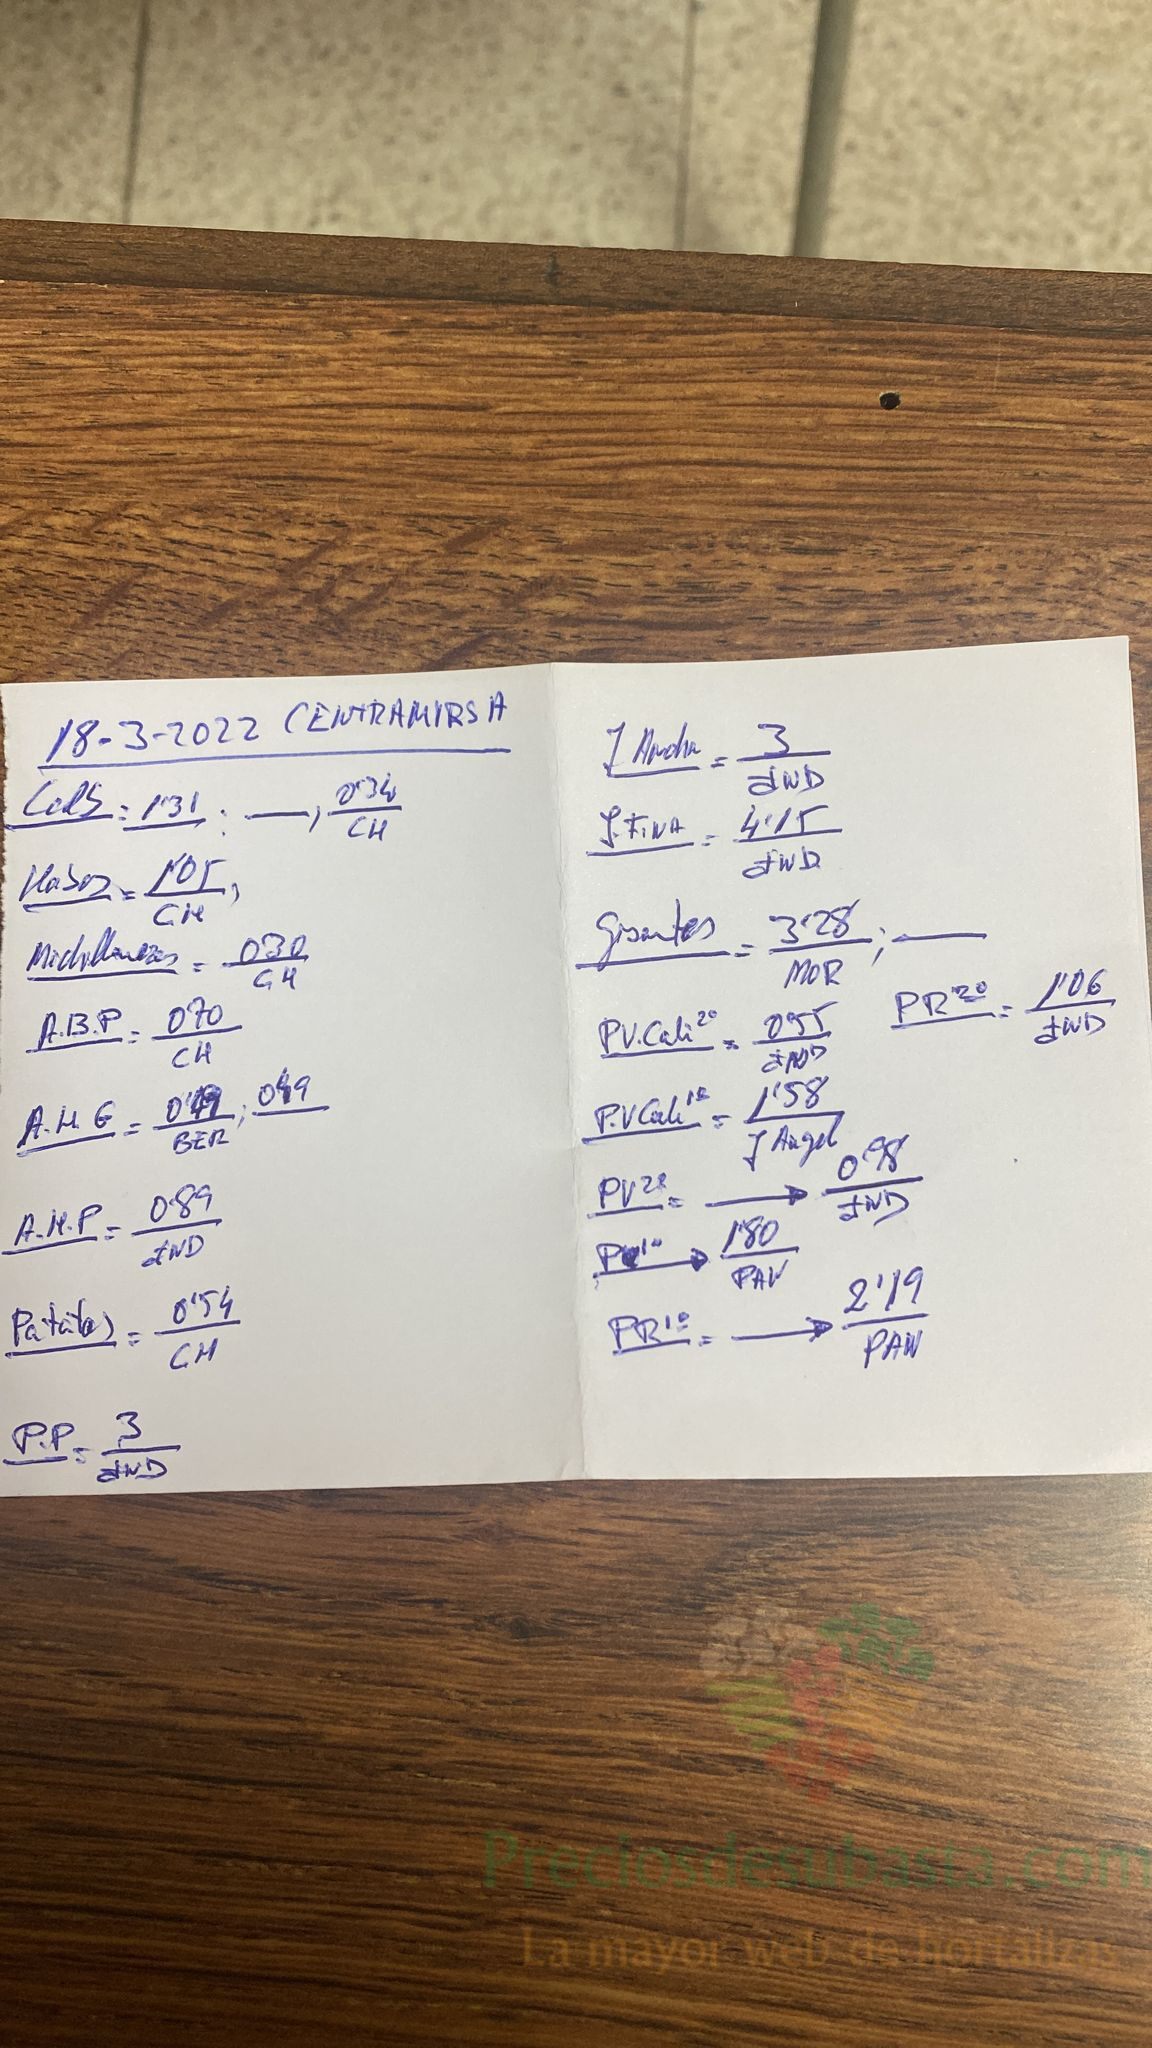 18-3-2022 CENTRAMIRSA
= 1'31 ; — ; 0'34
CH
Habas = 1'05 ;
CH
= 0'30
CH
A.B.P = 0'70
CH
A.M.G = ; 0'49
BER
A.M.P = 0'89
IND
Patatas = 0'54
CH
P.P = 3
IND
J Ancha = 3
IND
J. FINA = 4'15
IND
Gisantes = 3'28 ; —
MOR
PV.Cali 2ª = 0'95
IND
PR 2ª = 1'06
IND
P.V Cali 1ª = 1'58
J Angel
PV 2ª = → 0'98
IND
→ 1'80
PAW
PR 1ª = → 2'19
PAW
Preciosdesubasta.com
La mayor web de hortalizas